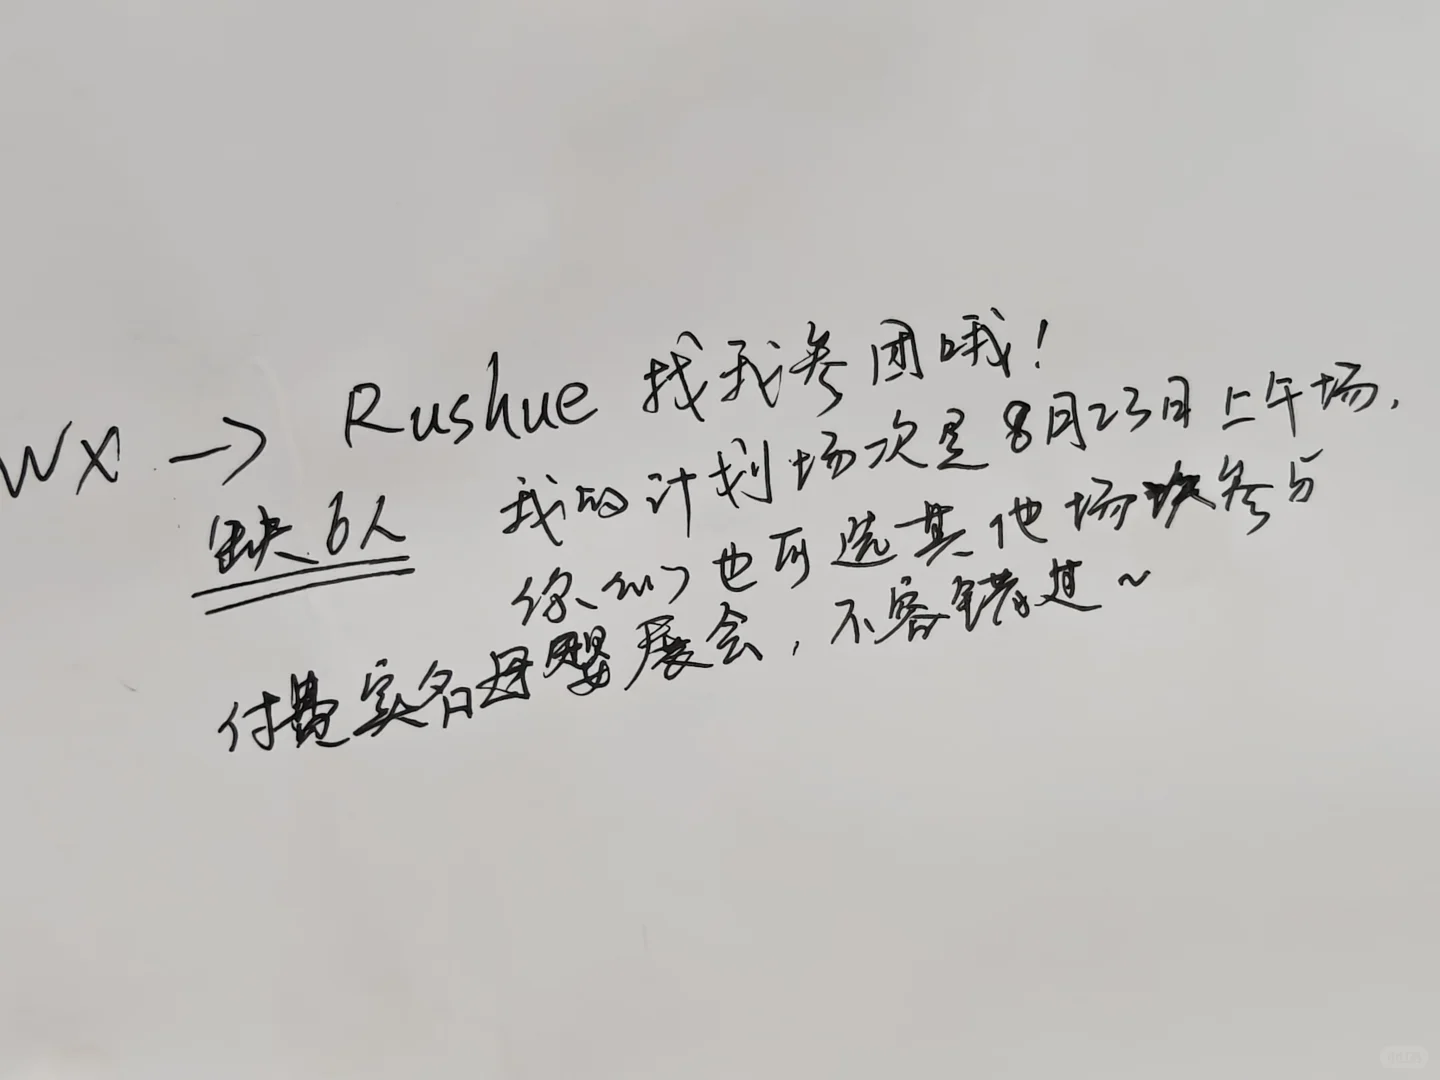 WX → Rushue 找我参团哦！
缺6人
我的计划场次是8月23日上午场.
你们也可选其他场次参与
付费实名母婴展会，不容错过~
小红书